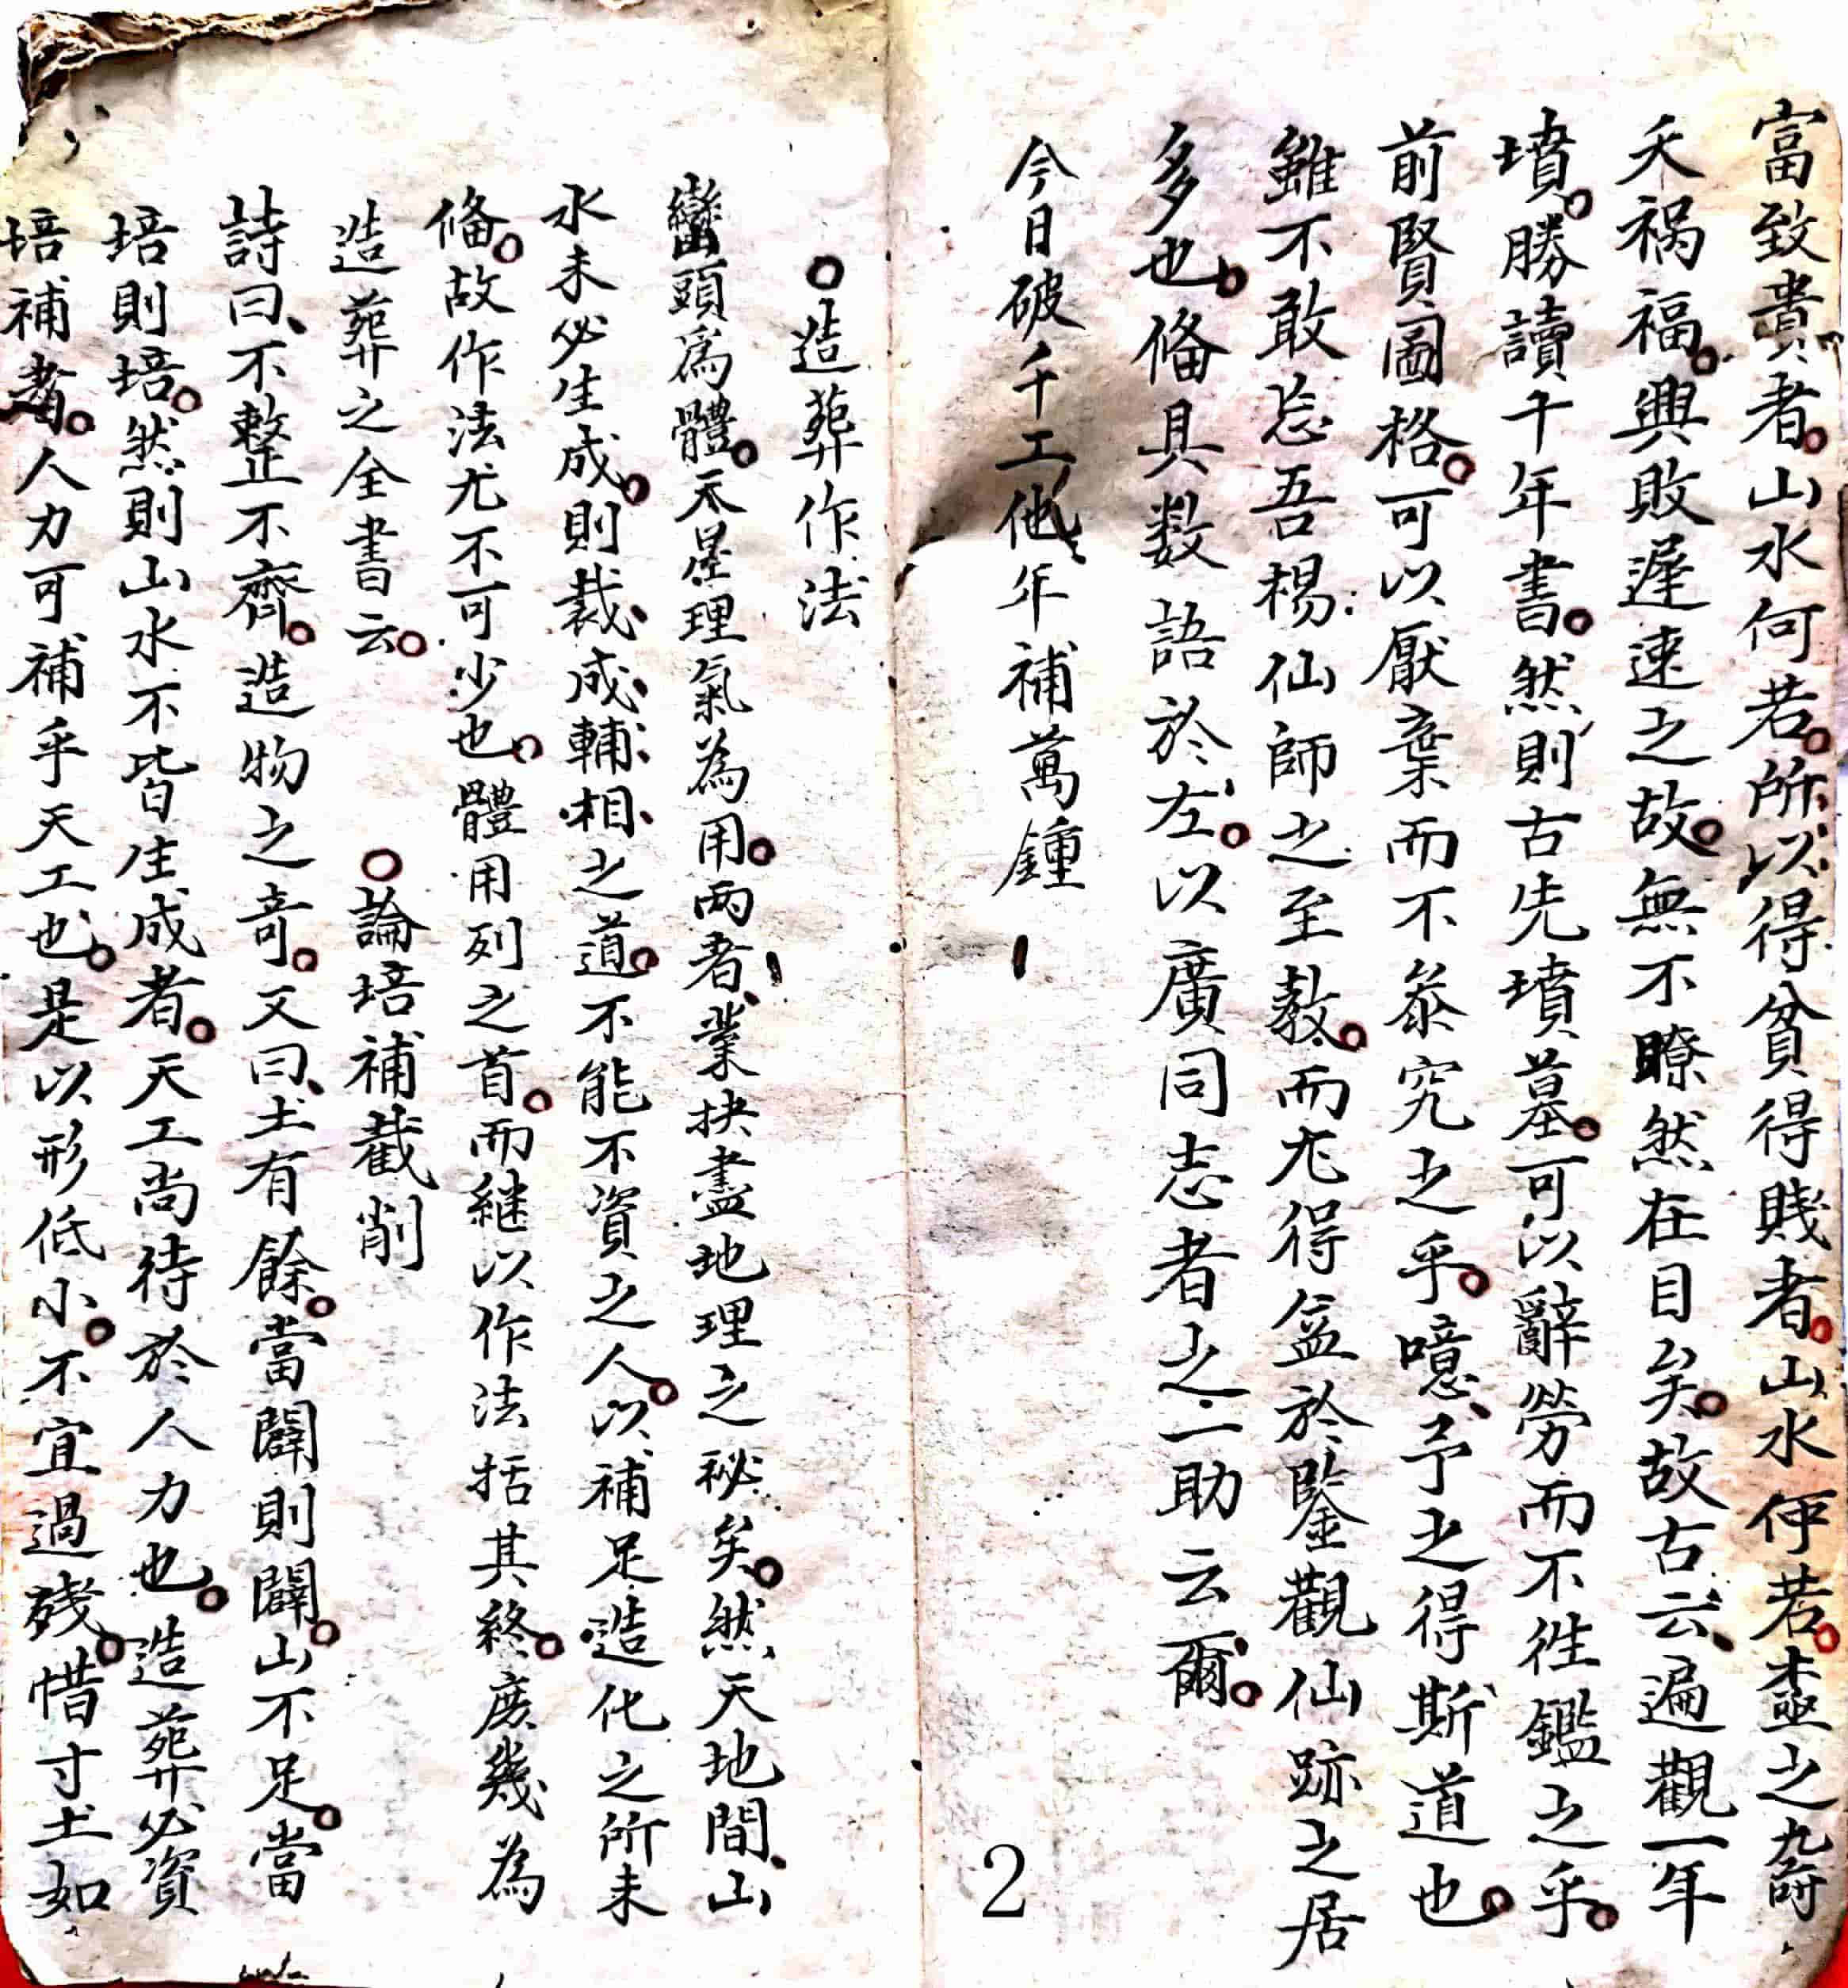 富致貴者。山水何若。所以得貧得賤者。山水何若。盍之九所
夭祸福。興敗遲速之故。無不瞭然在目矣。故古云、遍觀一年
墳。勝讀千年書。然則古先墳墓。可以辭勞而不徃鑑之乎。
前賢圖格。可以厭棄而不叅究之乎。噫、予之得斯道也。
雖不敢忘吾楊仙師之至教。而尤得益於鑒觀仙跡之居
多也。俻具数語於左。以廣同志者之一助云爾。
今日破千工他年補萬鍾
2
○造葬作法
巒頭為體。天星理氣為用。两者、業抉盡地理之秘矣。然天地間、山
水未必生成。則裁成輔相之道。不能不資之人。以補足造化之所未
俻。故作法尤不可少也。體用列之首。而継以作法括其終。庶幾為
造葬之全書云。 ○論培補截削
詩曰、不整不齊。造物之奇。又曰、土有餘。當闢則闢。山不足。當
培則培。然則山水不皆生成者。天工尚待於人力也。造葬必資
培補者。人力可補乎天工也。是以形低小。不宜過殘。惜寸土如